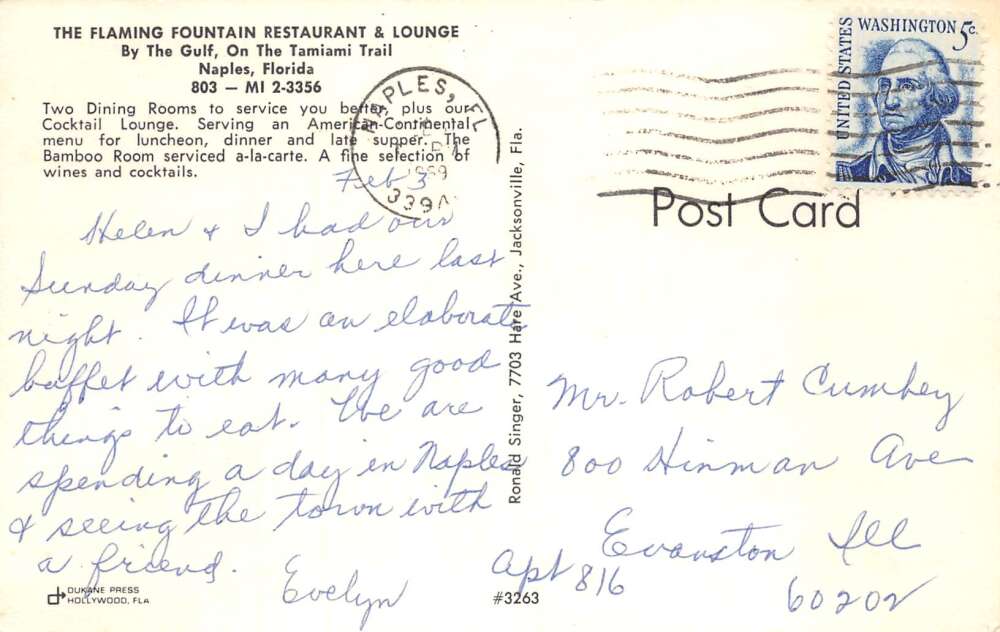 THE FLAMING FOUNTAIN RESTAURANT & LOUNGE
By The Gulf, On The Tamiami Trail
Naples, Florida
803 — MI 2-3356
Two Dining Rooms to service you better, plus our
Cocktail Lounge. Serving an American-Continental
menu for luncheon, dinner and late supper. The
Bamboo Room serviced a-la-carte. A fine selection of
wines and cocktails.
NAPLES, FL
1969
339
Feb 3
Helen & I had our
Sunday dinner here last
night. It was an elaborate
buffet with many good
things to eat. We are
spending a day in Naples
& seeing the town with
a friend.
Evelyn
DUKANE PRESS
HOLLYWOOD, FLA
#3263
Ronald Singer, 7703 Hare Ave., Jacksonville, Fla.
UNITED STATES
WASHINGTON 5c
Post Card
Mr. Robert Cumbey
800 Hinman Ave
Evanston Ill
Apt 816
60202